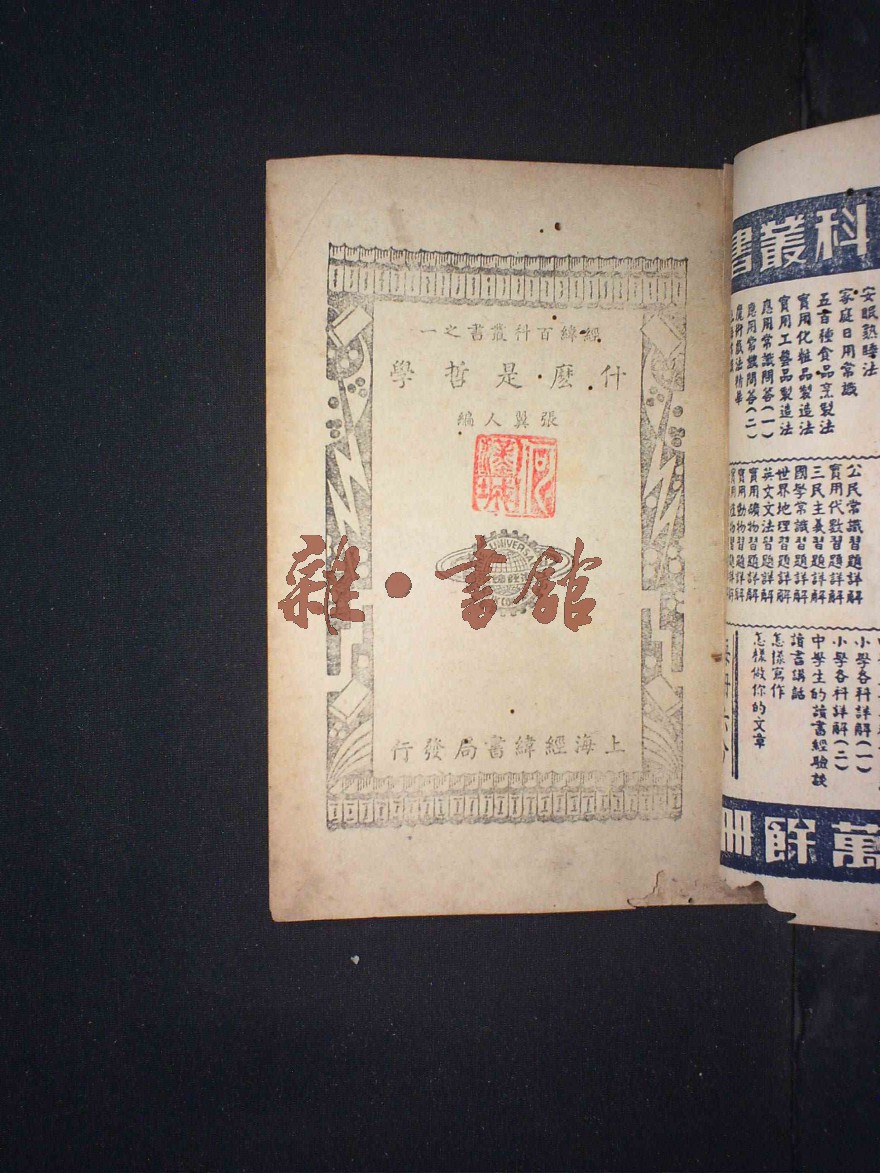 經緯百科叢書之一
什麽是哲學
張翼人編
UNIVERS
雜·書館
上海經緯書局發行
科叢書
安眠熟睡法
家庭日用常識
五百種食品烹製法
實用化粧品製造法
實用工藝品製造法
應用常識問答(一)
應用常識問答(二)
魔術戲法精華
公民常識習題詳解
實用代數習題詳解
三民主義習題詳解
國學常識習題詳解
世界地理習題詳解
英文文法習題詳解
實用礦物習題詳解
實用動物習題詳解
實用植物習題詳解
小學各科詳解(一)
小學各科詳解(二)
中學生的讀書經驗談
讀書講話
怎樣寫作
怎樣做你的文章
萬餘冊